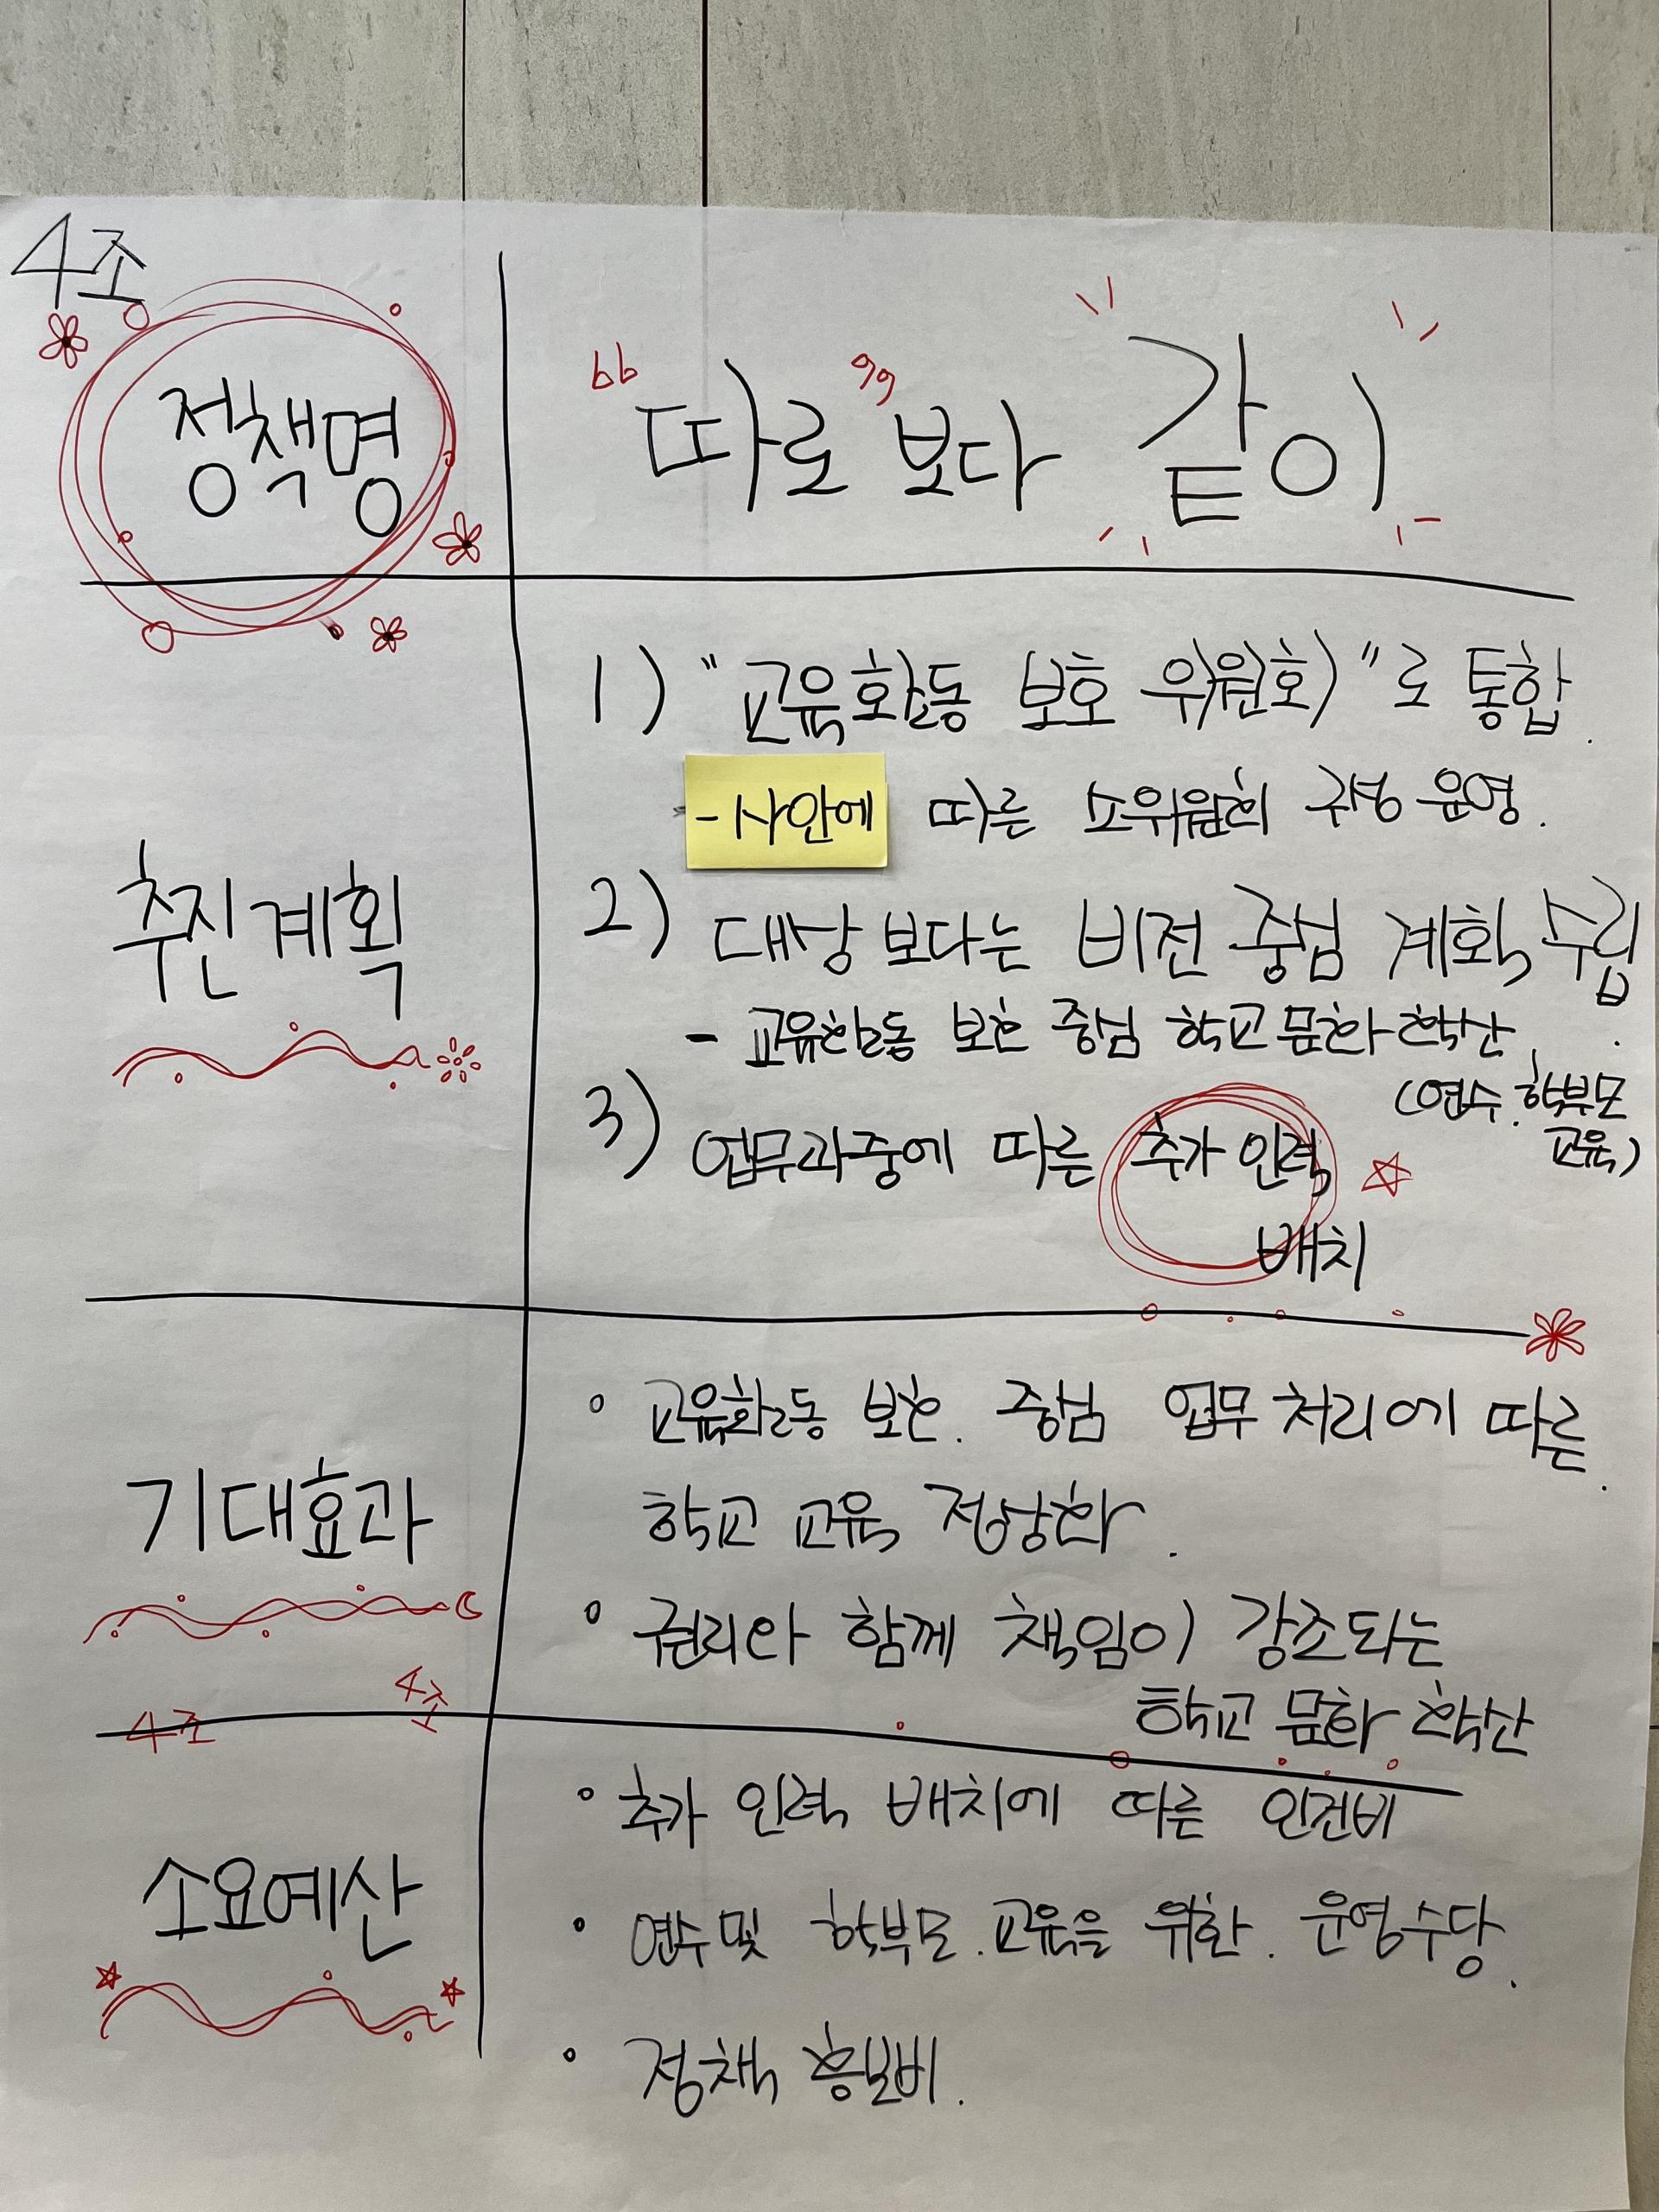 4조
정책명
"따로" 보다 같이
추진계획
1) "교육활동 보호 위원회"로 통합.
- 사안에 따른 소위원회 구성 운영.
2) 대상 보다는 비전 중심 계획 수립.
- 교육활동 보호 중심 학교 문화 확산
(연수. 학부모
교육)
3) 업무과중에 따른 추가 인력
배치
기대효과
• 교육활동 보호. 중심 업무 처리에 따른.
학교 교육 정상화.
• 권리와 함께 책임이 강조되는
학교 문화 확산
4조
4조
소요예산
• 추가 인력 배치에 따른 인건비
• 연수 및 학부모. 교육을 위한. 운영수당.
• 정책 홍보비.